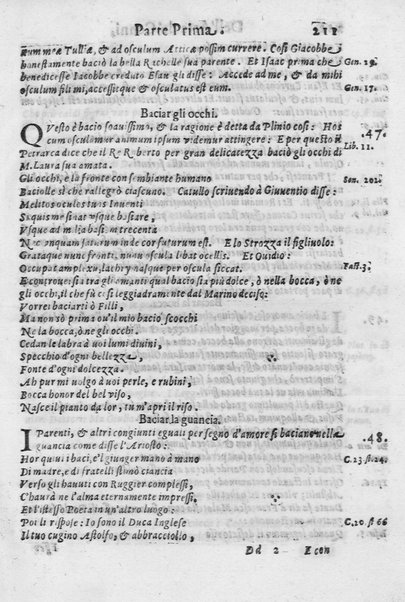 Parte Prima. 211
tum meæ Tulliæ, & ad osculum Atticæ possim currere. Così Giacobbe
honestamente baciò la bella Rachelle sua parente. Et Isaac prima che Gen. 29.
benedicesse Iacobbe creduto Esau gli disse: Accede ad me, & da mihi
osculum fili mi, accessit que & osculatus est eum. Gen. 17.
Baciar gli occhi.
QVesto è bacio soauissimo, & la ragione è detta da Plinio così: Hos 47.
cum osculamur animum ipsum videmur attingere: E per questo il Lib. 11.
Petrarca dice che il Rè Roberto per gran delicatezza baciò gli occhi di
M. Laura sua amata.
Gli occhi, e la fronte con sembiante humano Son. 201.
Baciolle sì che rallegrò ciascuno. Catullo scriuendo à Giuuentio disse:
Melitos oculos tuos Iuuenti
Si quis me sinat vsque basiare,
Vsque ad millia basiem trecenta
Nec vnquam saturum inde cor futurum est. E lo Strozza il figliuolo:
Grataque nunc fronti, nunc oscula libat ocellis. Et Ouidio:
Occupat amplexu, lachrymasque per oscula siccat. Fast. 3.
E controuersia tra gli amanti qual bacio sia più dolce, ò nella bocca, ò ne
gli occhi, il che fù così leggiadramente dal Marino deciso:
Vorrei baciarti ò Filli,
Ma non sò prima oue'l mio bacio scocchi
Ne la bocca, ò ne gli occhi.
Cedan le labra à voi lumi diuini,
Specchio d'ogni bellezza,
Fonte d'ogni dolcezza.
Ah pur mi volgo à voi perle, e rubini,
Bocca honor del bel viso,
Nasce il pianto da lor, tu m'apri il riso.
Baciar la guancia.
I Parenti, & altri congiunti eguali per segno d'amore si baciano nella 48.
guancia come disse l'Ariosto:
Hor qui i baci, e'l giunger mano à mano C. 23. st. 24.
Di madre, e di fratelli stimò ciancia
Verso gli hauuti con Ruggier complessi,
C'haurà ne l'alma eternamente impressi,
Et l'istesso Poeta in vn'altro luogo:
Poi li rispose: Io sono il Duca Inglese C. 20. st 66
Il tuo cugino Astolfo, & abbracciollo,
Dd 2 E con